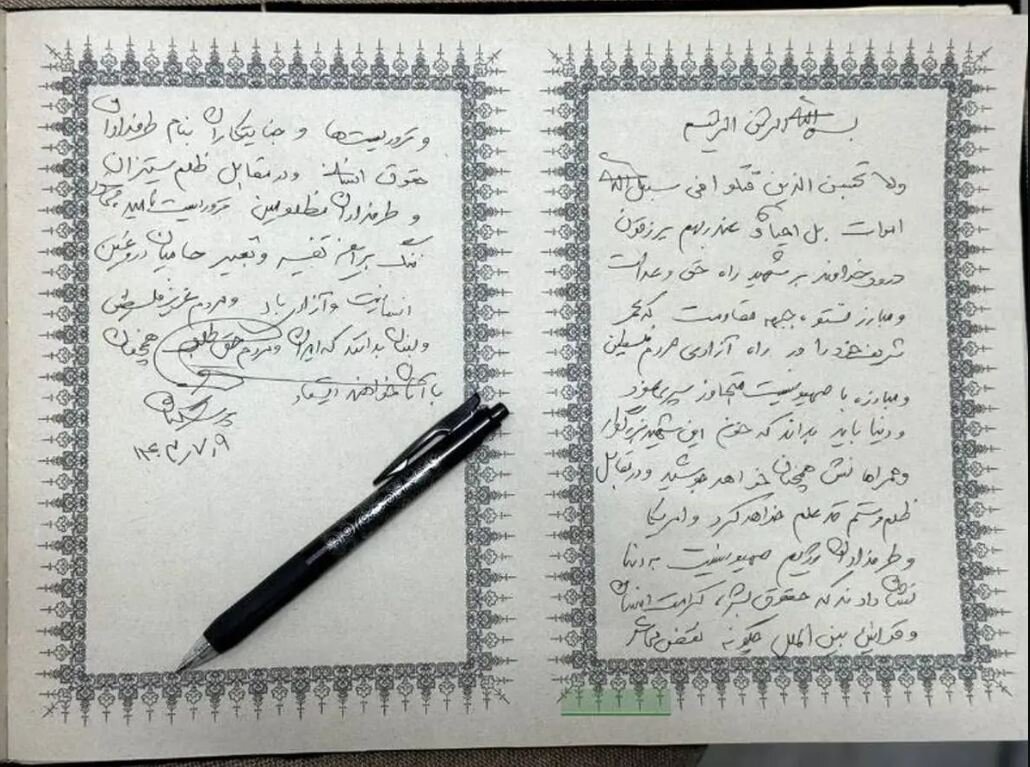 بسم الله الرحمن الرحیم
ولا تحسبن الذین قتلوا فی سبیل الله
امواتا بل احیاء عند ربهم یرزقون
درود خداوند بر شهید راه حق و عدالت
و مبارز نستوه جبهه مقاومت که عمر
شریف خود را در راه آزادی مردم فلسطین
و مبارزه با صهیونیست متجاوز سپری نمود
و دنیا باید بداند که خون این شهید بزرگوار
و همراهانش همچنان خواهد جوشید و در مقابل
ظلم و ستم قد علم خواهد کرد و امریکا
و طرفداران رژیم صهیونیست به دنیا
نشان دادند که حقوق بشر، کرامت انسان
و قوانین بین الملل چگونه نقض
و تروریست‌ها و جنایتکاران بنام طرفداران
حقوق انسان و در مقابل ظلم ستیزان
و طرفداران مظلومین تروریست نامیده
ننگ بر این تفسیر و تعبیر حامیان دروغین
انسانیت و آزادی باد و مردم عزیز فلسطین
و لبنان بدانند که ایران و مردم حق طلب همچنان
با آنان خواهند ایستاد
پزشکیان
۱۴۰۳/۷/۹